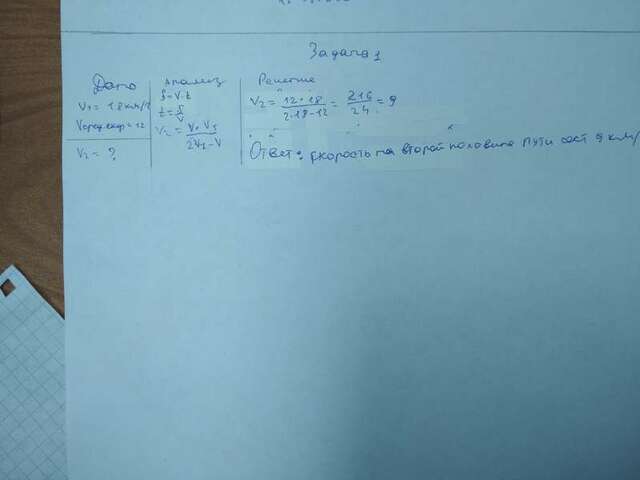 Задача 1
Дано
V1 = 18 км/ч
Vсред.скор = 12
V2 = ?
Анализ
S=V·t
t = S/V
V2 = V·V1/2V1-V
Решение
V2 = 12·18/2·18-12 = 216/24 = 9
Ответ: скорость на второй половине пути сост 9 км/